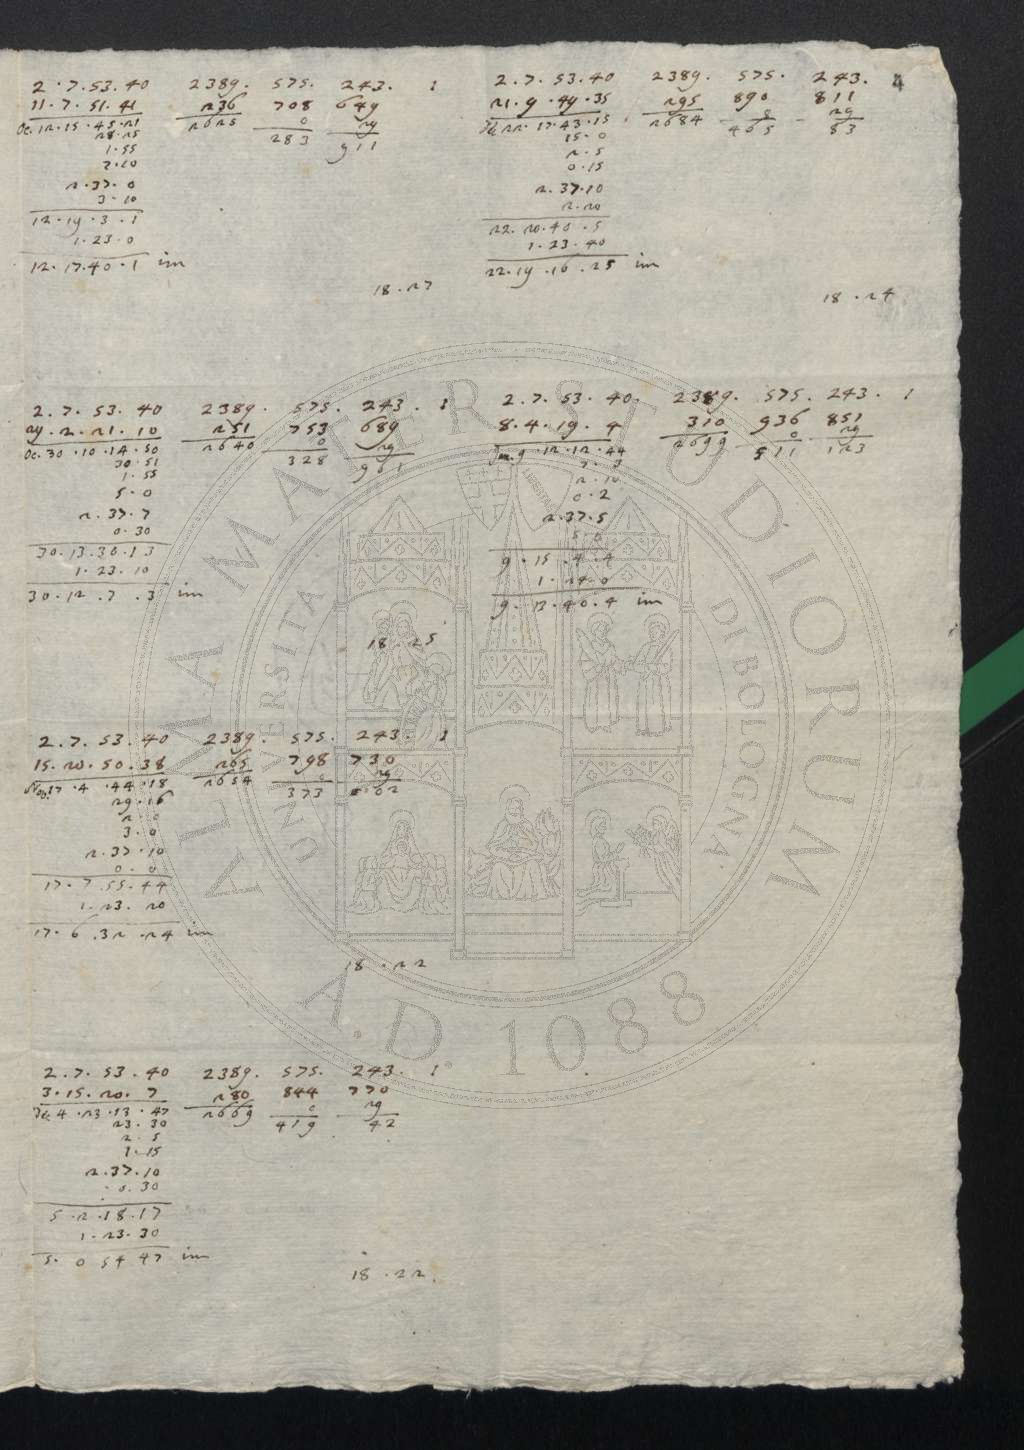 4
2 . 7 . 53 . 40 2389 . 575 . 243 . 1
11 . 7 . 51 . 41 236 708 649
Oc. 12 . 15 . 45 . 21 2625 0 29
28 . 25 283 911
1 . 55
2 . 37 . 0
3 . 10
12 . 19 . 3 . 1
1 . 23 . 0
12 . 17 . 40 . 1 im
18 . 27
2 . 7 . 53 . 40 2389 . 575 . 243 .
21 . 9 . 49 . 35 295 890 811
22 . 17 . 43 . 15 2684 0 29
15 . 0 465 83
2 . 5
0 . 15
2 . 37 . 10
2 . 20
22 . 20 . 40 . 5
1 . 23 . 40
22 . 19 . 16 . 25 im
18 . 24
2 . 7 . 53 . 40 2389 . 575 . 243 . 1
29 . 2 . 21 . 10 251 753 689
Oc. 30 . 10 . 14 . 50 2640 0 29
30 . 51 328 961
1 . 55
5 . 0
2 . 37 . 7
0 . 30
30 . 13 . 30 . 13
1 . 23 . 10
30 . 12 . 7 . 3 im
18 . 25
2 . 7 . 53 . 40 . 2389 . 575 . 243 . 1
8 . 4 . 19 . 4 310 936 851
Jan. 9 . 12 . 12 . 44 2699 0 29
511 123
2 . 10
0 . 2
2 . 37 . 5
5 . 0
9 . 15 . 4 . 4
1 . 24 . 0
9 . 13 . 40 . 4 im
2 . 7 . 53 . 40 2389 . 575 . 243 . 1
15 . 20 . 50 . 38 265 798 730
Nov. 17 . 4 . 44 . 18 2654 0 29
29 . 16 373 2
2 . 0
3 . 0
2 . 37 . 10
0 . 0
17 . 7 . 55 . 44
1 . 23 . 20
17 . 6 . 32 . 24 im
18 . 22
2 . 7 . 53 . 40 2389 . 575 . 243 . 1
3 . 15 . 20 . 7 280 844 770
4 . 23 . 13 . 47 2669 0 29
23 . 30 419 42
2 . 5
1 . 15
2 . 37 . 10
0 . 30
5 . 2 . 18 . 17
1 . 23 . 30
5 . 0 54 47 im
18 . 22 .
ALMA MATER STUDIORUM
UNIVERSITA DI BOLOGNA
A.D. 1088